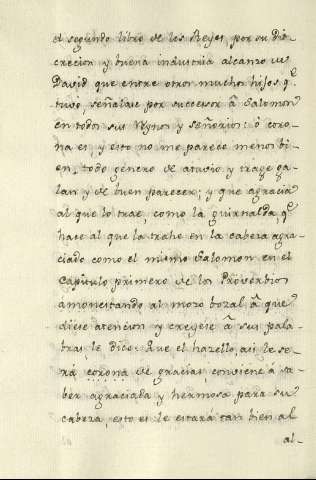 el segundo libro de los Reyes, por su dis-
crecion y buena industria alcanzo de
David que entre otros muchos hijos q.e
tuvo, señalase por successor â Salomon
en todos sus Reynos y señorios: ô coro-
na es, y esto no me parece menos bi-
en, todo género de atavio y trage ga-
lan y de buen parecer; y que agracia
al que lo trae, como la guirnalda, q.e
hace al que la trahe en la cabeza agra-
ciado como el mismo Salomon en el
capitulo primero de los Proverbios
amonestando al mozo bozal â que
diese atencion y creyese â sus pala-
bras, le dice: Que el hazello, asi le se-
rá corona de gracias, conviene â sa-
ber agraciada y hermosa para su
cabeza, esto es le estará tan bien al
al-